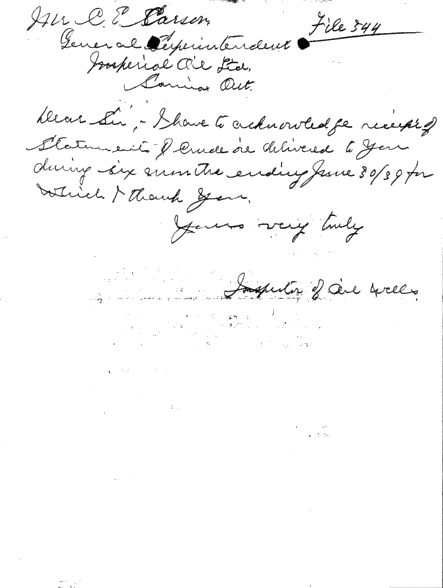 Mr C. E. Carson
File 544
General Superintendent
Imperial Oil Ltd.
Sarnia Ont.
Dear Sir,- I have to acknowledge receipt of
Statements of Crude oil delivered to you
during six months ending June 30/39 for
which I thank you.
Yours very truly
Inspector of Oil Wells.